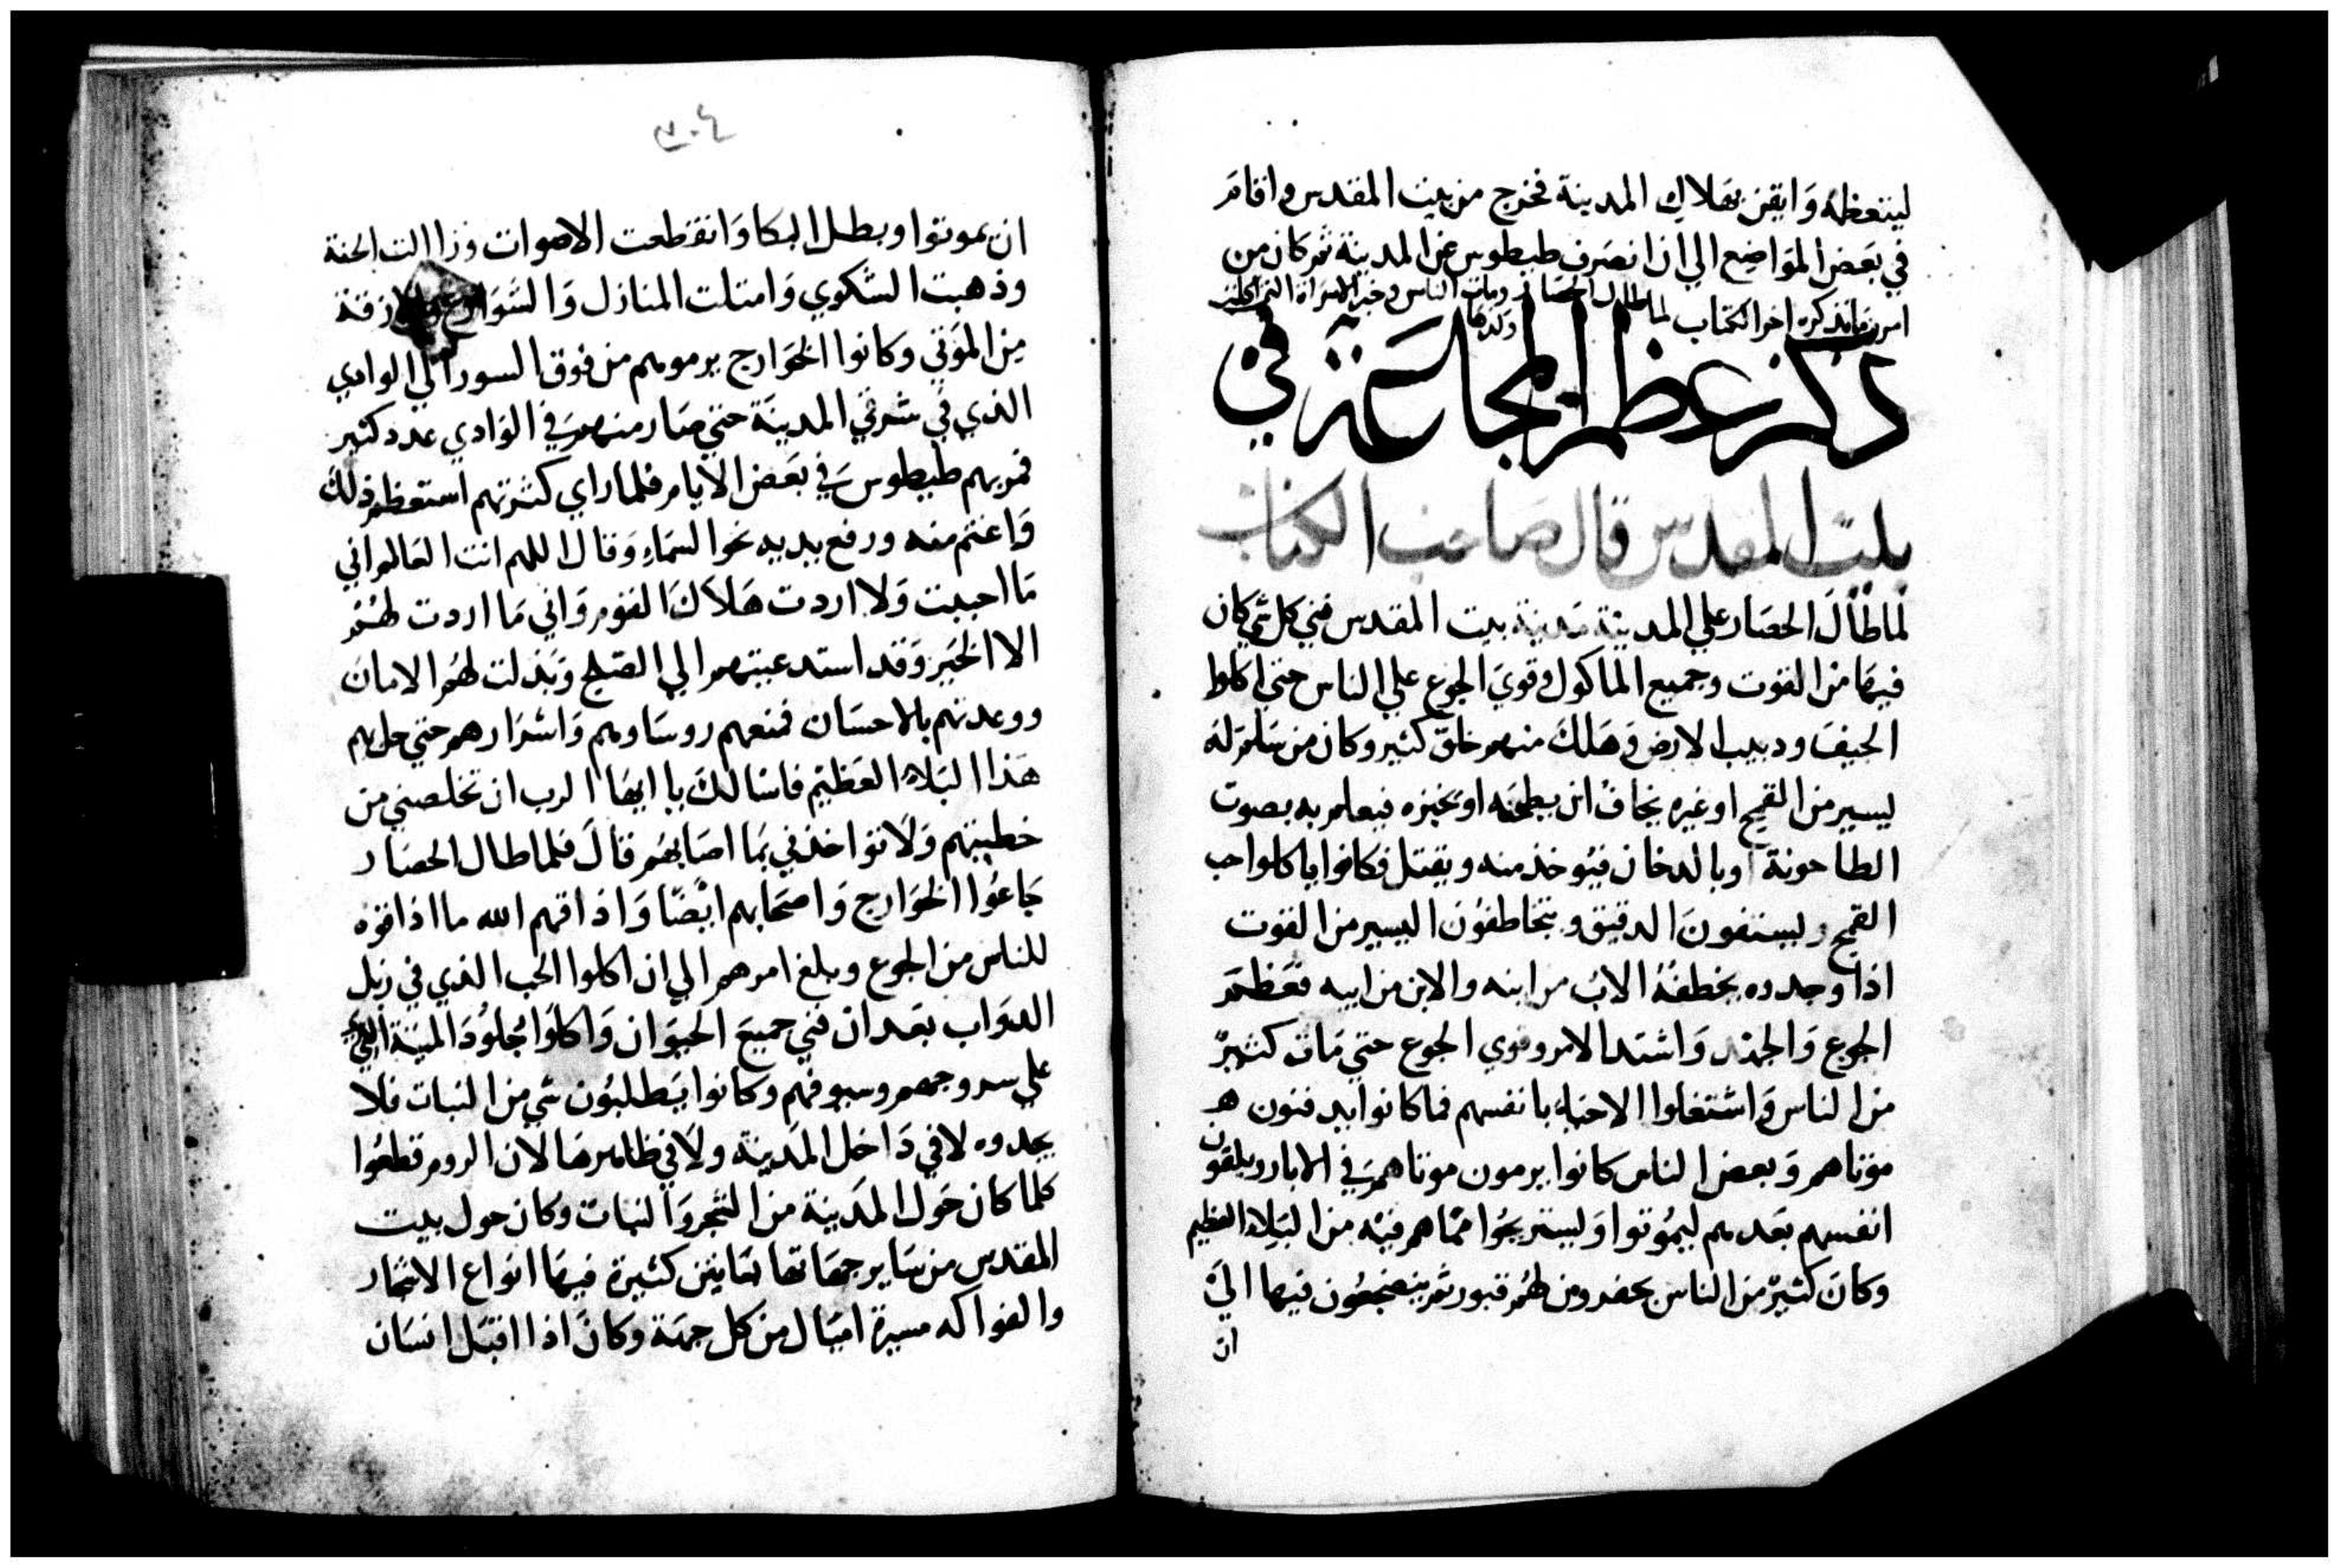 ليتعظوا وايقن بهلاك المدينة فخرج من بيت المقدس واقام
في بعض المواضع الي ان انصرف طيطوس عن المدينة ثم كان من
امره ما نذكره اخر الكتاب لما طال الحصار ومات الناس وخبر الامراة التي اكلت
ولدها
ذكر عظم المجاعة في
بيت المقدس قال صاحب الكتاب
لما طال الحصار علي المدينة مدينة بيت المقدس فني كل شي كان
فيها من القوت وجميع الماكول وقوي الجوع علي الناس حتي اكلوا
الجيف ودبيب الارض وهلك منهم خلق كثير وكان من سلم له
يسير من القمح او غيره يخاف ان يطحنه او يخبزه فيعلم به بصوت
الطاحونة او بالدخان فيوخذ منه ويقتل فكانوا ياكلوا حب
القمح ويستفون الدقيق ويتخاطفون اليسير من القوت
اذا وجدوه يخطفه الاب من ابنه والابن من ابيه فعظم
الجوع والجهد واشتد الامر وقوي الجوع حتي مات كثير
من الناس واشتغلوا الاحياء بانفسهم فما كانوا يدفنون
موتاهم وبعض الناس كانوا يرمون موتاهم في الابار ويلقون
انفسهم بعدهم ليموتوا وليستريحوا مما هم فيه من البلاء العظيم
وكان كثير من الناس يحفرون لهم قبور ثم ينضجعون فيها الي
ان
٣٠٤
ان يموتوا وبطل البكا وانقطعت الاصوات وزالت الحنة
وذهبت الشكوي وامتلت المنازل والشوارع والازقة
من الموتي وكانوا الخوارج يرمونهم من فوق السور الي الوادي
الذي في شرقي المدينة حتي صار منهم في الوادي عدد كثير
فمر بهم طيطوس في بعض الايام فلما راي كثرتهم استعظم ذلك
واغتم منه ورفع يديه نحو السماء وقال اللهم انت العالم اني
ما احببت ولا اردت هلاك القوم واني ما اردت لهم
الا الخير وقد استدعيتهم الي الصلح وبذلت لهم الامان
ووعدتهم بالاحسان فمنعهم روساوهم واشرارهم حتي حل بهم
هذا البلاء العظيم فاسالك يا ايها الرب ان تخلصني من
خطيتهم ولا تواخذني بما اصابهم قال فلما طال الحصار
جاعوا الخوارج واصحابهم ايضا واذاقهم الله ما اذاقوه
للناس من الجوع وبلغ امرهم الي ان اكلوا الحب الذي في زبل
الدواب بعد ان فني جميع الحيوان واكلوا جلود الميتة التي
علي سروجهم وسيوفهم وكانوا يطلبون شي من النبات فلا
يجدوه لا في داخل المدينة ولا في ظاهرها لان الروم قطعوا
كلما كان حول المدينة من الشجر والنبات وكان حول بيت
المقدس من ساير جهاتها بساتين كثيرة فيها انواع الاشجار
والفواكه مسيرة اميال من كل جهة وكان اذا اقبل انسان